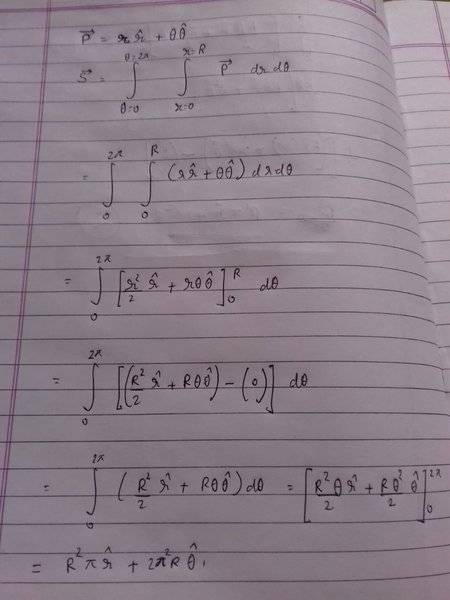 P⃗ = r r̂ + θ θ̂
S⃗ = ∫_{θ=0}^{θ=2π} ∫_{r=0}^{r=R} P⃗ dr dθ
= ∫_0^{2π} ∫_0^R (r r̂ + θ θ̂) dr dθ
= ∫_0^{2π} [r²/2 r̂ + rθ θ̂]_0^R dθ
= ∫_0^{2π} [(R²/2 r̂ + Rθ θ̂) − (0)] dθ
= ∫_0^{2π} (R²/2 r̂ + Rθ θ̂) dθ = [R²θ/2 r̂ + Rθ²/2 θ̂]_0^{2π}
= R²π r̂ + 2π²R θ̂.